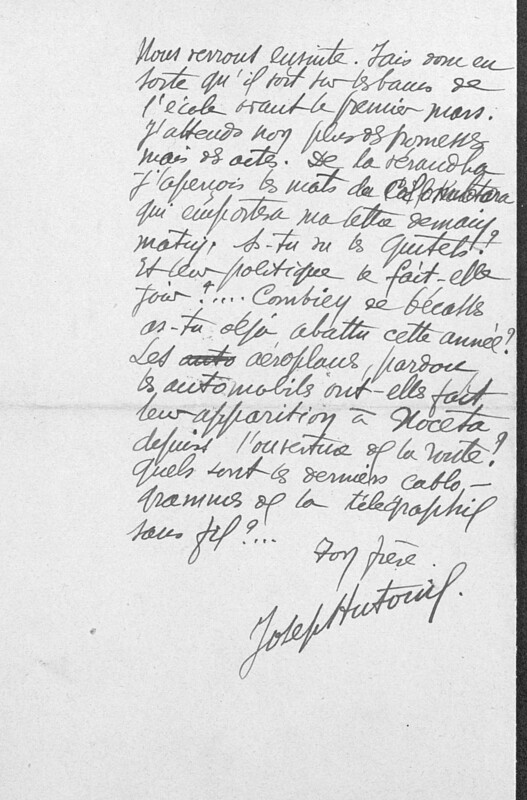 Nous verrons ensuite. Fais donc en
sorte qu'il soit sur les bancs de
l'école avant le premier mars.
J'attends non plus des promesses
mais des actes. De la vérandha
j'aperçois les mats du
qui emportera ma lettre demain
matin. As-tu vu les ?
Et leur politique te fait-elle
jouir ?.... Combien de bécasses
as-tu déjà abattu cette année ?
Les auto aéroplans, pardon,
les automobils ont-elles fait
leur apparition à Noceta
depuis l'ouverture de la route ?
Quels sont les derniers cablo-
grammes de la télégraphie
sans fil ?...
Ton frère.
Joseph Antoine.